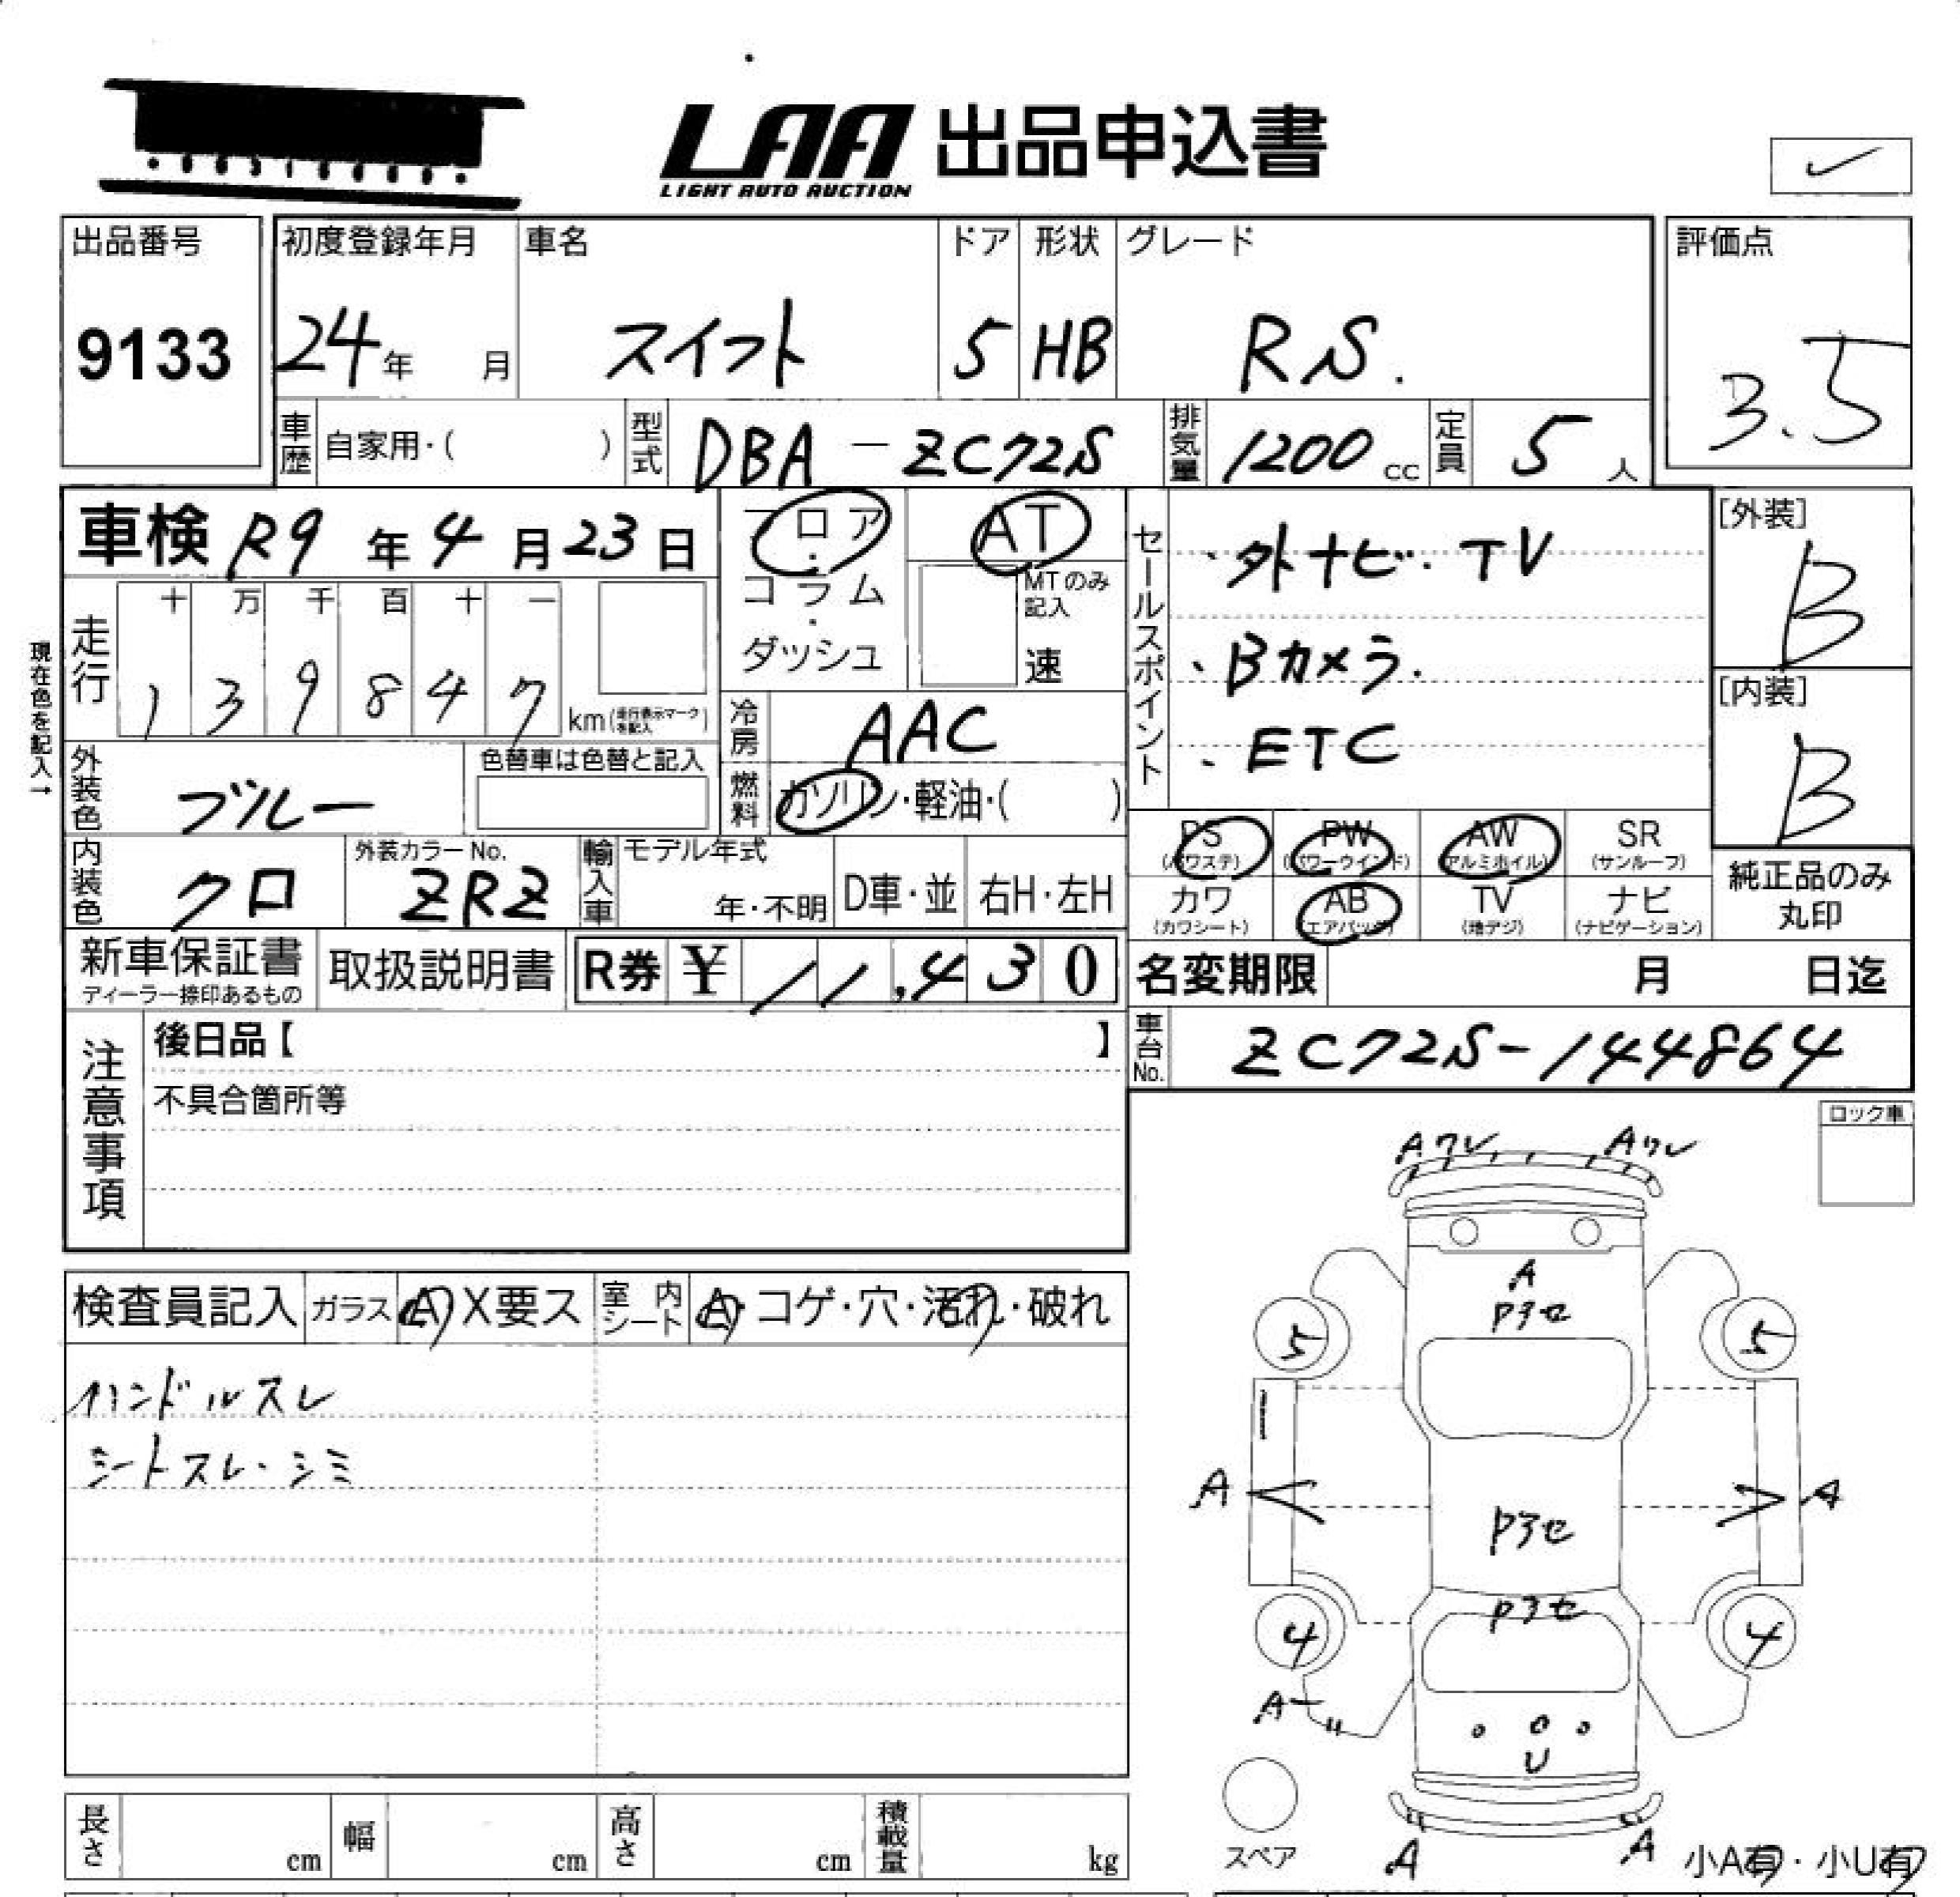 LAA 出品申込書
LIGHT AUTO AUCTION
✓
出品番号 初度登録年月 車名 ドア 形状 グレード 評価点
9133 24年 月 スイフト 5 HB RS. 3.5
車歴 自家用・( ) 型式 DBA-ZC72S 排気量 1200cc 定員 5人
車検 R9年4月23日 フロア・コラム・ダッシュ AT MTのみ記入 速
セールスポイント
・外ナビ.TV
・Bカメラ.
・ETC
[外装] B
[内装] B
現在色を記入→
走行 十 万 千 百 十 一
1 3 9 8 4 7 km(走行表示マークを記入)
冷房 AAC
外装色 ブルー 色替車は色替と記入 燃料 ガソリン・軽油・( )
内装色 クロ 外装カラーNo. ZRZ 輸入車 モデル年式 年・不明 D車・並 右H・左H
PS(パワステ) PW(パワーウインド) AW(アルミホイル) SR(サンルーフ)
カワ(カワシート) AB(エアバッグ) TV(地デジ) ナビ(ナビゲーション)
純正品のみ丸印
新車保証書 ディーラー捺印あるもの 取扱説明書 R券 ¥11,430 名変期限 月 日迄
車台No. ZC72S-144864
注意事項 後日品【 】
不具合箇所等
ロック車
検査員記入 ガラス A X要ス 室内シート A・コゲ・穴・汚れ・破れ
ハンドルスレ
シートスレ・シミ
Aワレ Aワレ
A
Pヨセ
5 5
A A
Pヨセ
Pヨセ
4 4
A
U
スペア
A A
小A有・小U有
長さ cm 幅 cm 高さ cm 積載量 kg